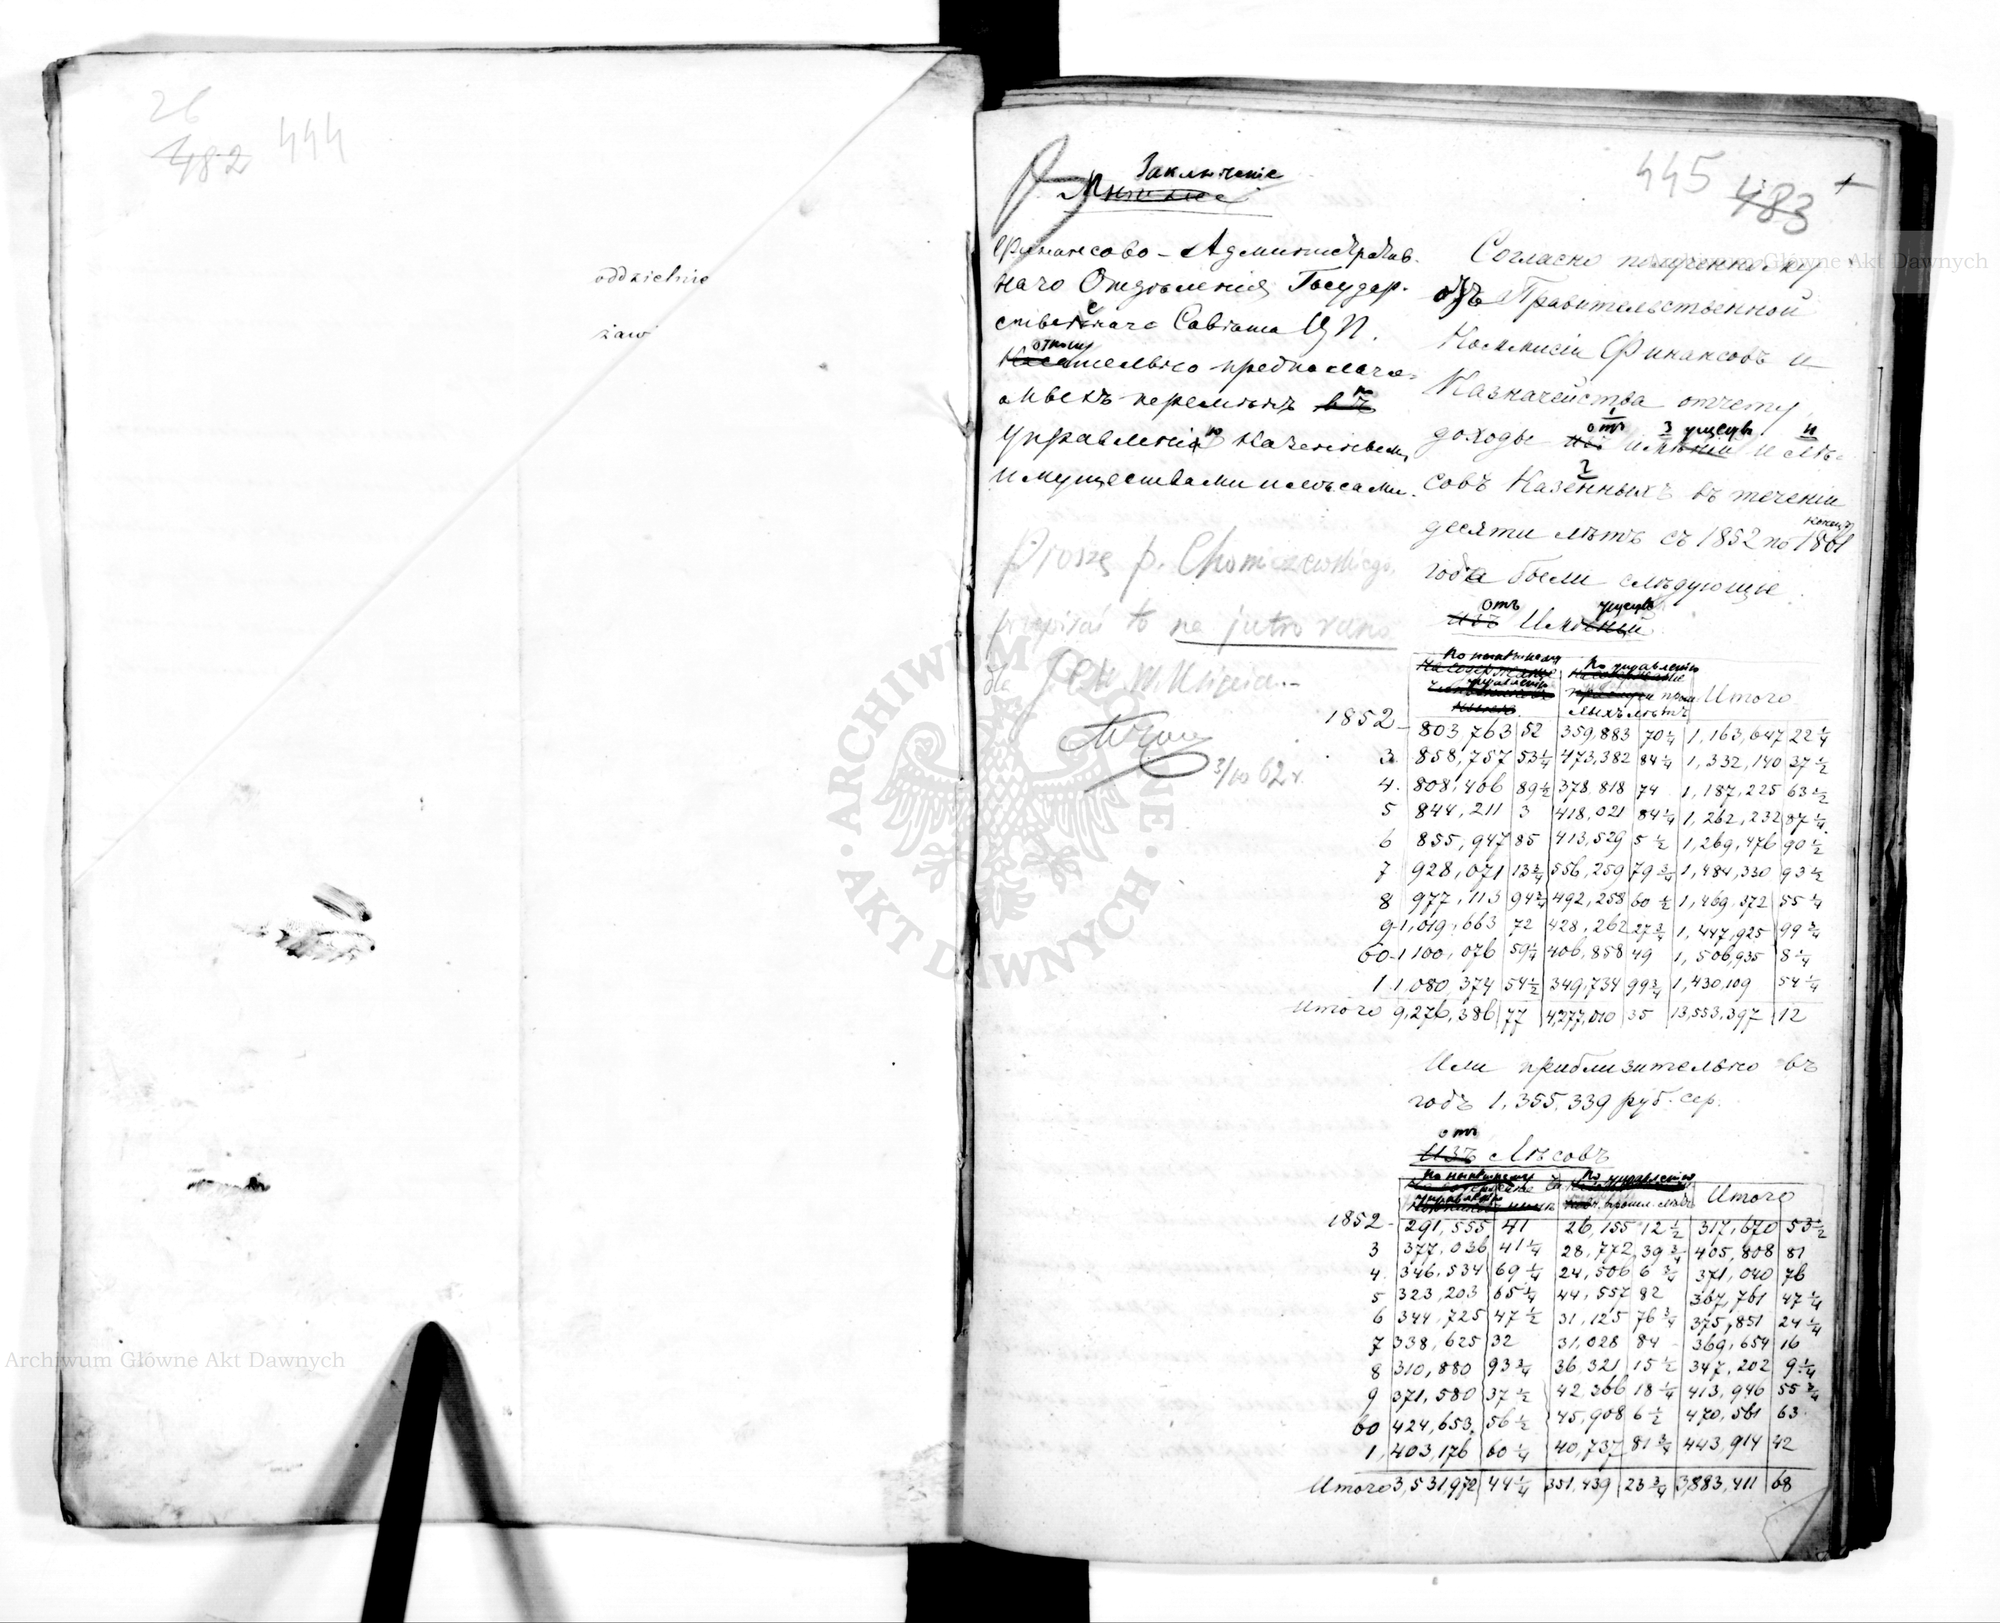 26
482 444
oddzielnie
zaw
445 483
Заключеніе
Мнѣніе
Финансово-Административ-
наго Отдѣленія Государ-
ственнаго Совѣта Ц П.
относи
Касательно предполага-
емыхъ перемѣнъ въ по
Управленію Казенными
имуществами и лѣсами.
Proszę p. Chomiczewskiego,
przepisać to na jutro rano
dla
3/10 62 r.
Согласно полученному
отъ Правительственной
Коммисіи Финансовъ и
Казначейства отчету,
доходы отъ имуществ и лѣ-
совъ Казенныхъ въ теченіи
десяти лѣтъ съ 1852 по конецъ 1861
года были слѣдующіе
отъ Имуществ
По нынѣшнему управленію По управленію прош- лыхъ лѣтъ Итого
1852 - 803,763 52 359,883 70 1/4 1,163,647 22 1/4
3 858,757 53 1/4 473,382 84 1/4 1,332,140 37 1/2
4. 808,406 89 1/2 378,818 74 1,187,225 63 1/2
5 844,211 3 418,021 84 1/4 1,262,232 87 1/4
6 855,947 85 413,529 5 1/2 1,269,476 90 1/2
7 928,071 13 3/4 556,259 79 3/4 1,484,330 93 1/2
8 977,113 94 3/4 492,258 60 1/2 1,469,372 55 1/4
9 1,019,663 72 428,262 27 3/4 1,447,925 99 3/4
60 1,100,076 59 1/4 406,858 49 1,506,935 8 1/4
1 1,080,374 54 1/2 349,734 99 3/4 1,430,109 54 1/4
Итого 9,276,386 77 4,277,010 35 13,553,397 12
Или приблизительно въ
годъ 1,355,339 руб. сер.
отъ
Изъ Лѣсовъ
По нынѣшнему управленію По управленію прошл. лѣтъ Итого
1852 - 291,555 41 26,155 12 1/2 317,670 53 1/2
3 377,036 41 1/4 28,772 39 3/4 405,808 81
4. 346,534 69 1/4 24,506 6 3/4 371,040 76
5 323,203 65 1/4 44,557 82 367,761 47 1/4
6 344,725 47 1/2 31,125 76 3/4 375,851 24 1/4
7 338,625 32 31,028 84 - 369,654 16
8 310,880 93 3/4 36,321 15 1/2 347,202 9 1/4
9 371,580 37 1/2 42366 18 1/4 413,946 55 3/4
60 424,653 56 1/2 45,908 6 1/2 470,561 63
1, 403,176 60 1/4 40,737 81 3/4 443,914 42
Итого 3,531,972 44 1/4 351,439 23 3/4 3,883,411 68
Archiwum Główne Akt Dawnych
Archiwum Główne Akt Dawnych
ARCHIWUM GŁÓWNE · AKT DAWNYCH ·